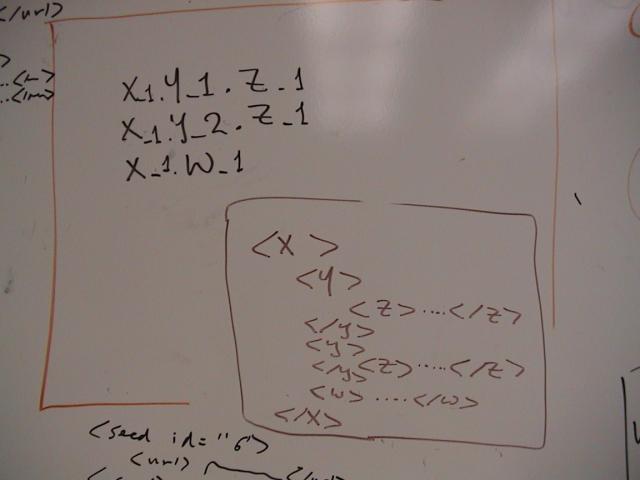 </url>
X_1.Y_1.Z_1
X_1.Y_2.Z_1
X_1.W_1
<X >
<Y>
<Z>....</Z>
</y>
<y>
</y><Z>.....</Z>
<w>....</w>
</X>
<seed id="6">
<url>
</antml>